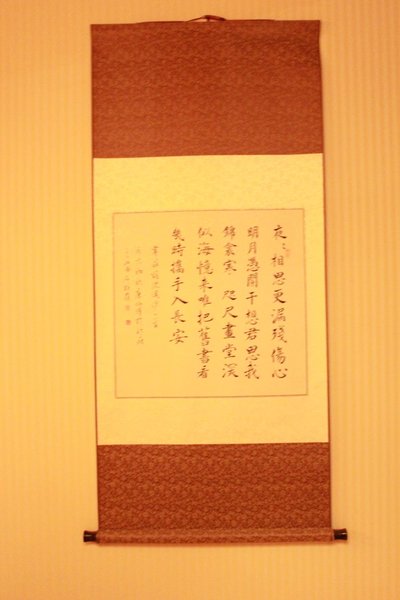 夜〻相思更漏殘傷心
明月憑闌干想君思我
錦衾寒 咫尺畫堂深
似海憶來唯把舊書看
幾時攜手入長安
韋莊詞浣溪沙一首